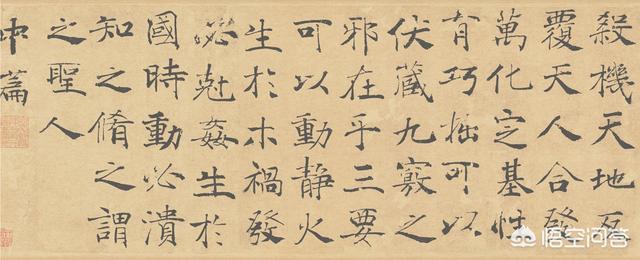 殺機天地反
覆天人合發
萬化定基性
有巧拙可以
伏藏九竅之
邪在乎三要
可以動靜火
生於木禍發
必尅姦生於
國時動必潰
知之脩之謂
之聖人
中篇
悟空问答